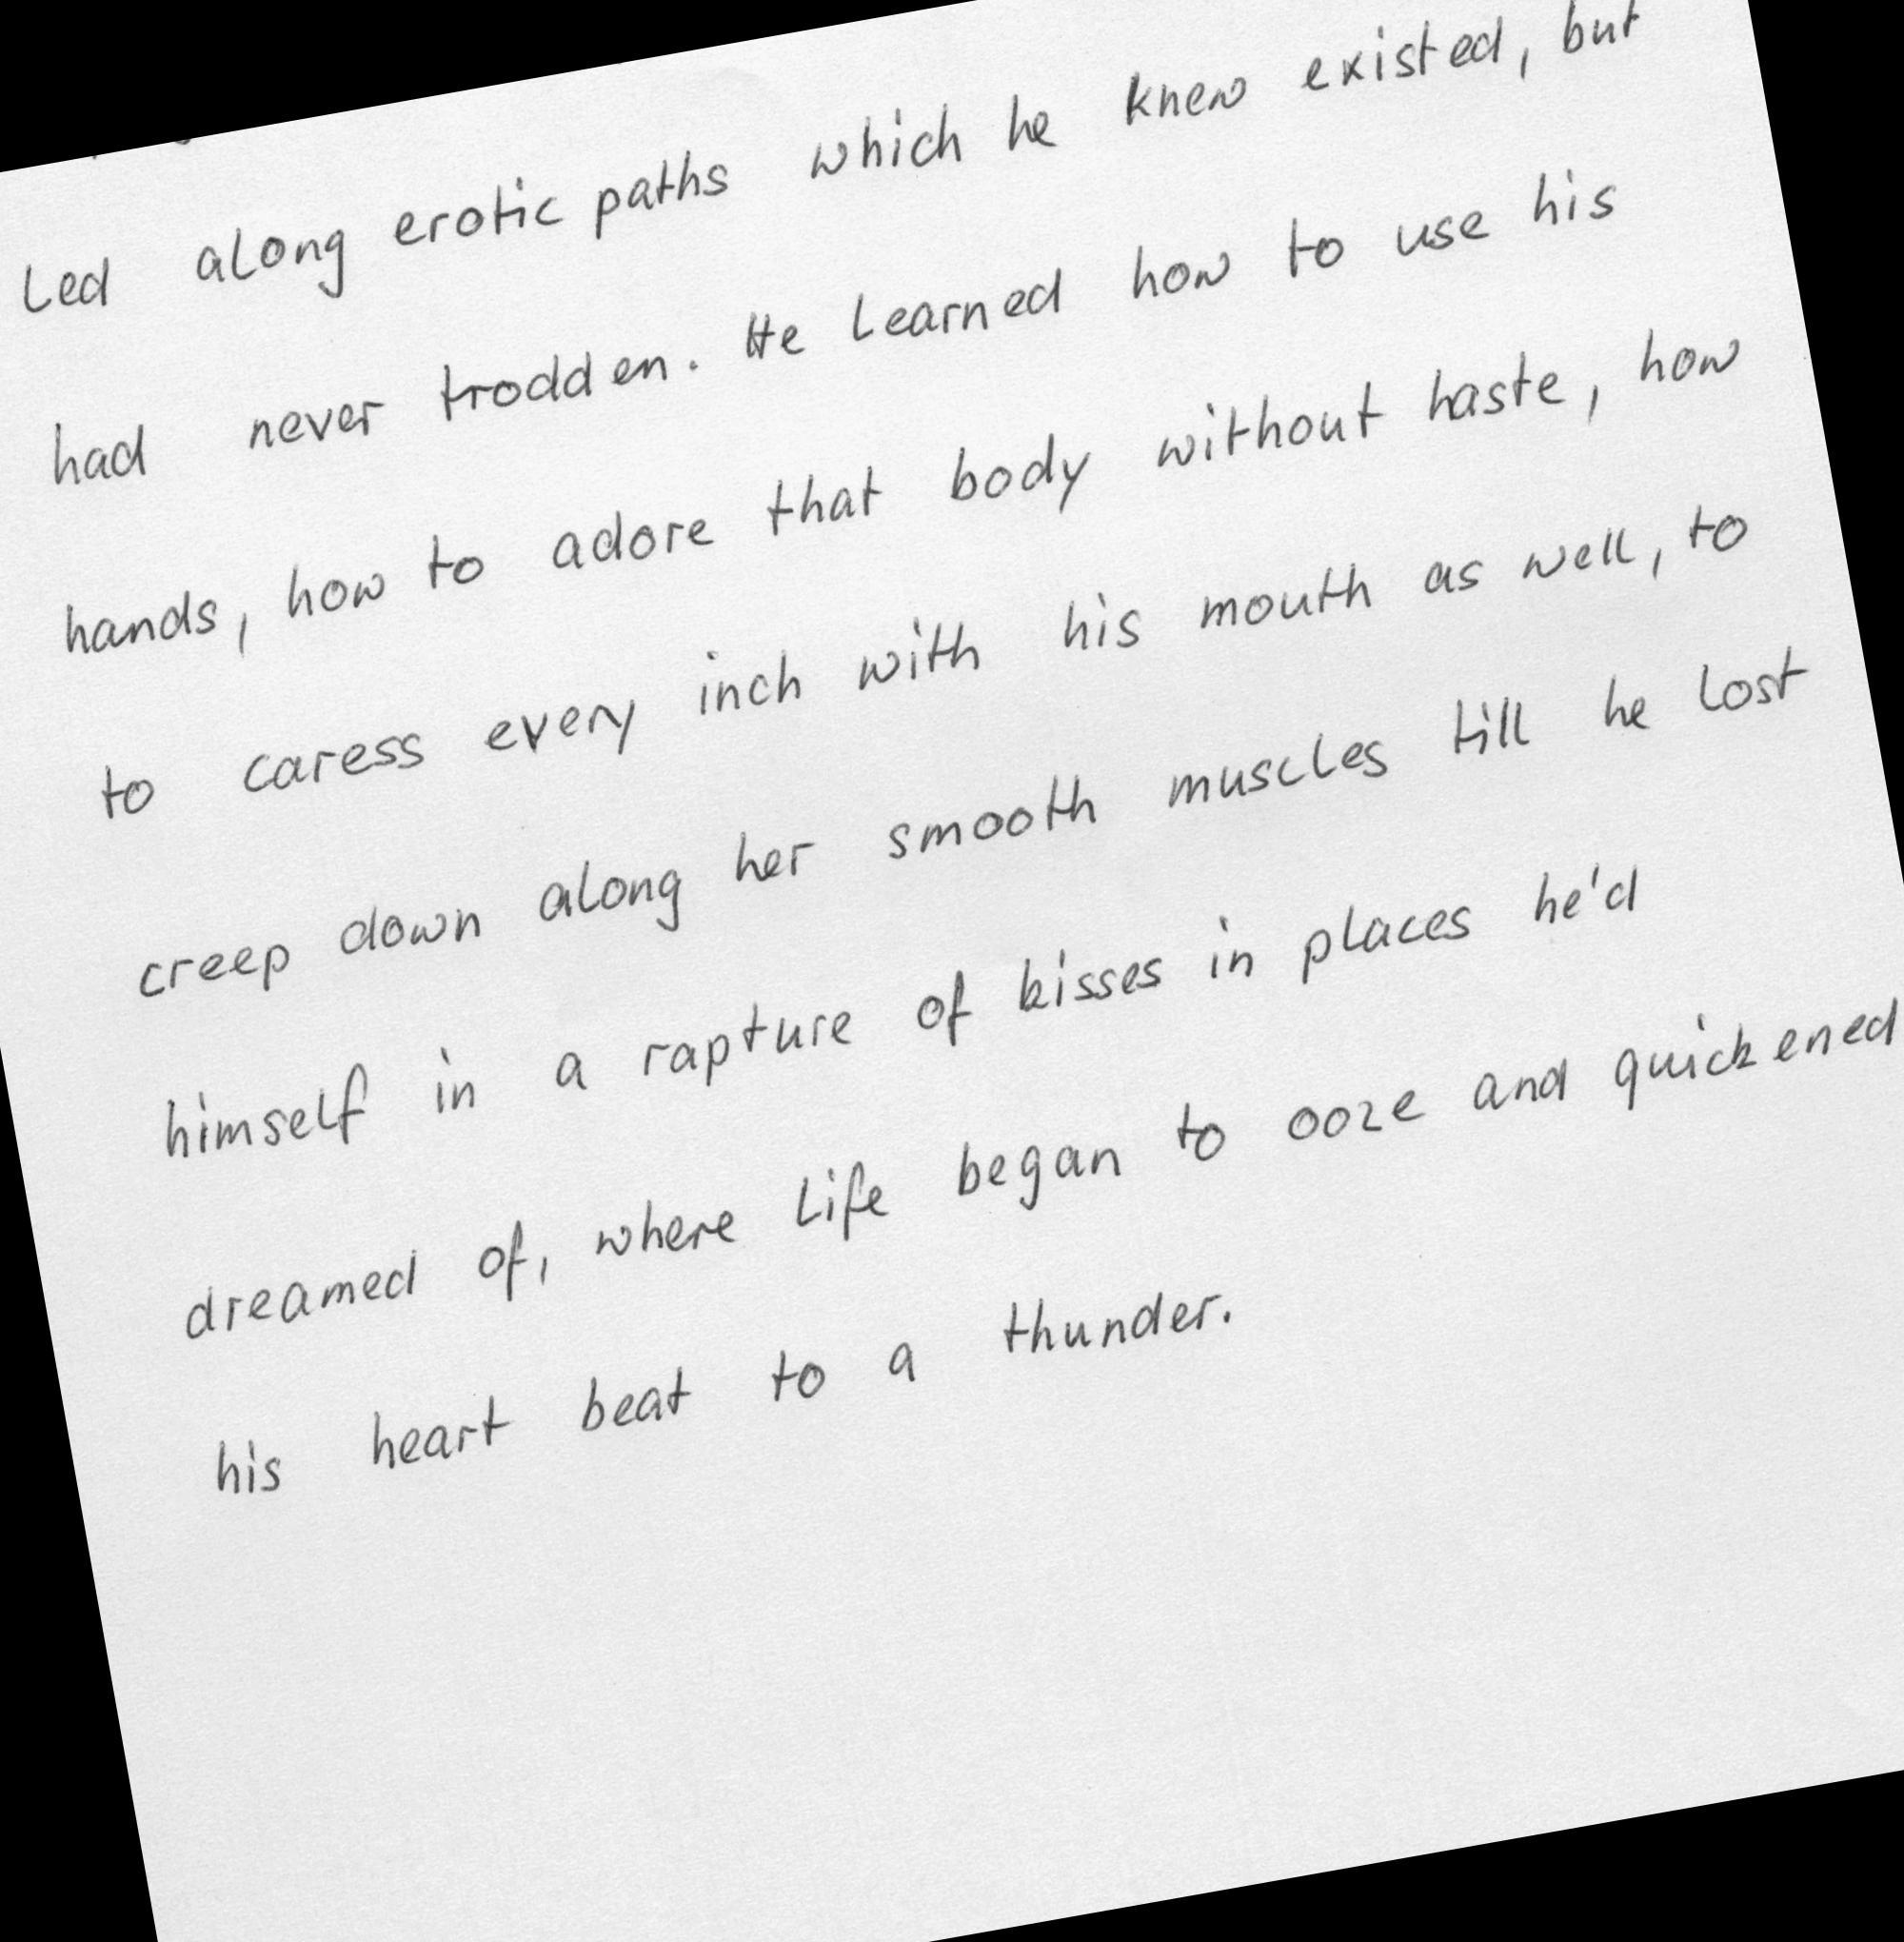 led along erotic paths which he knew existed, but
had never trodden. He learned how to use his
hands, how to adore that body without haste, how
to caress every inch with his mouth as well, to
creep down along her smooth muscles till he lost
himself in a rapture of kisses in places he'd
dreamed of, where life began to ooze and quickened
his heart beat to a thunder.